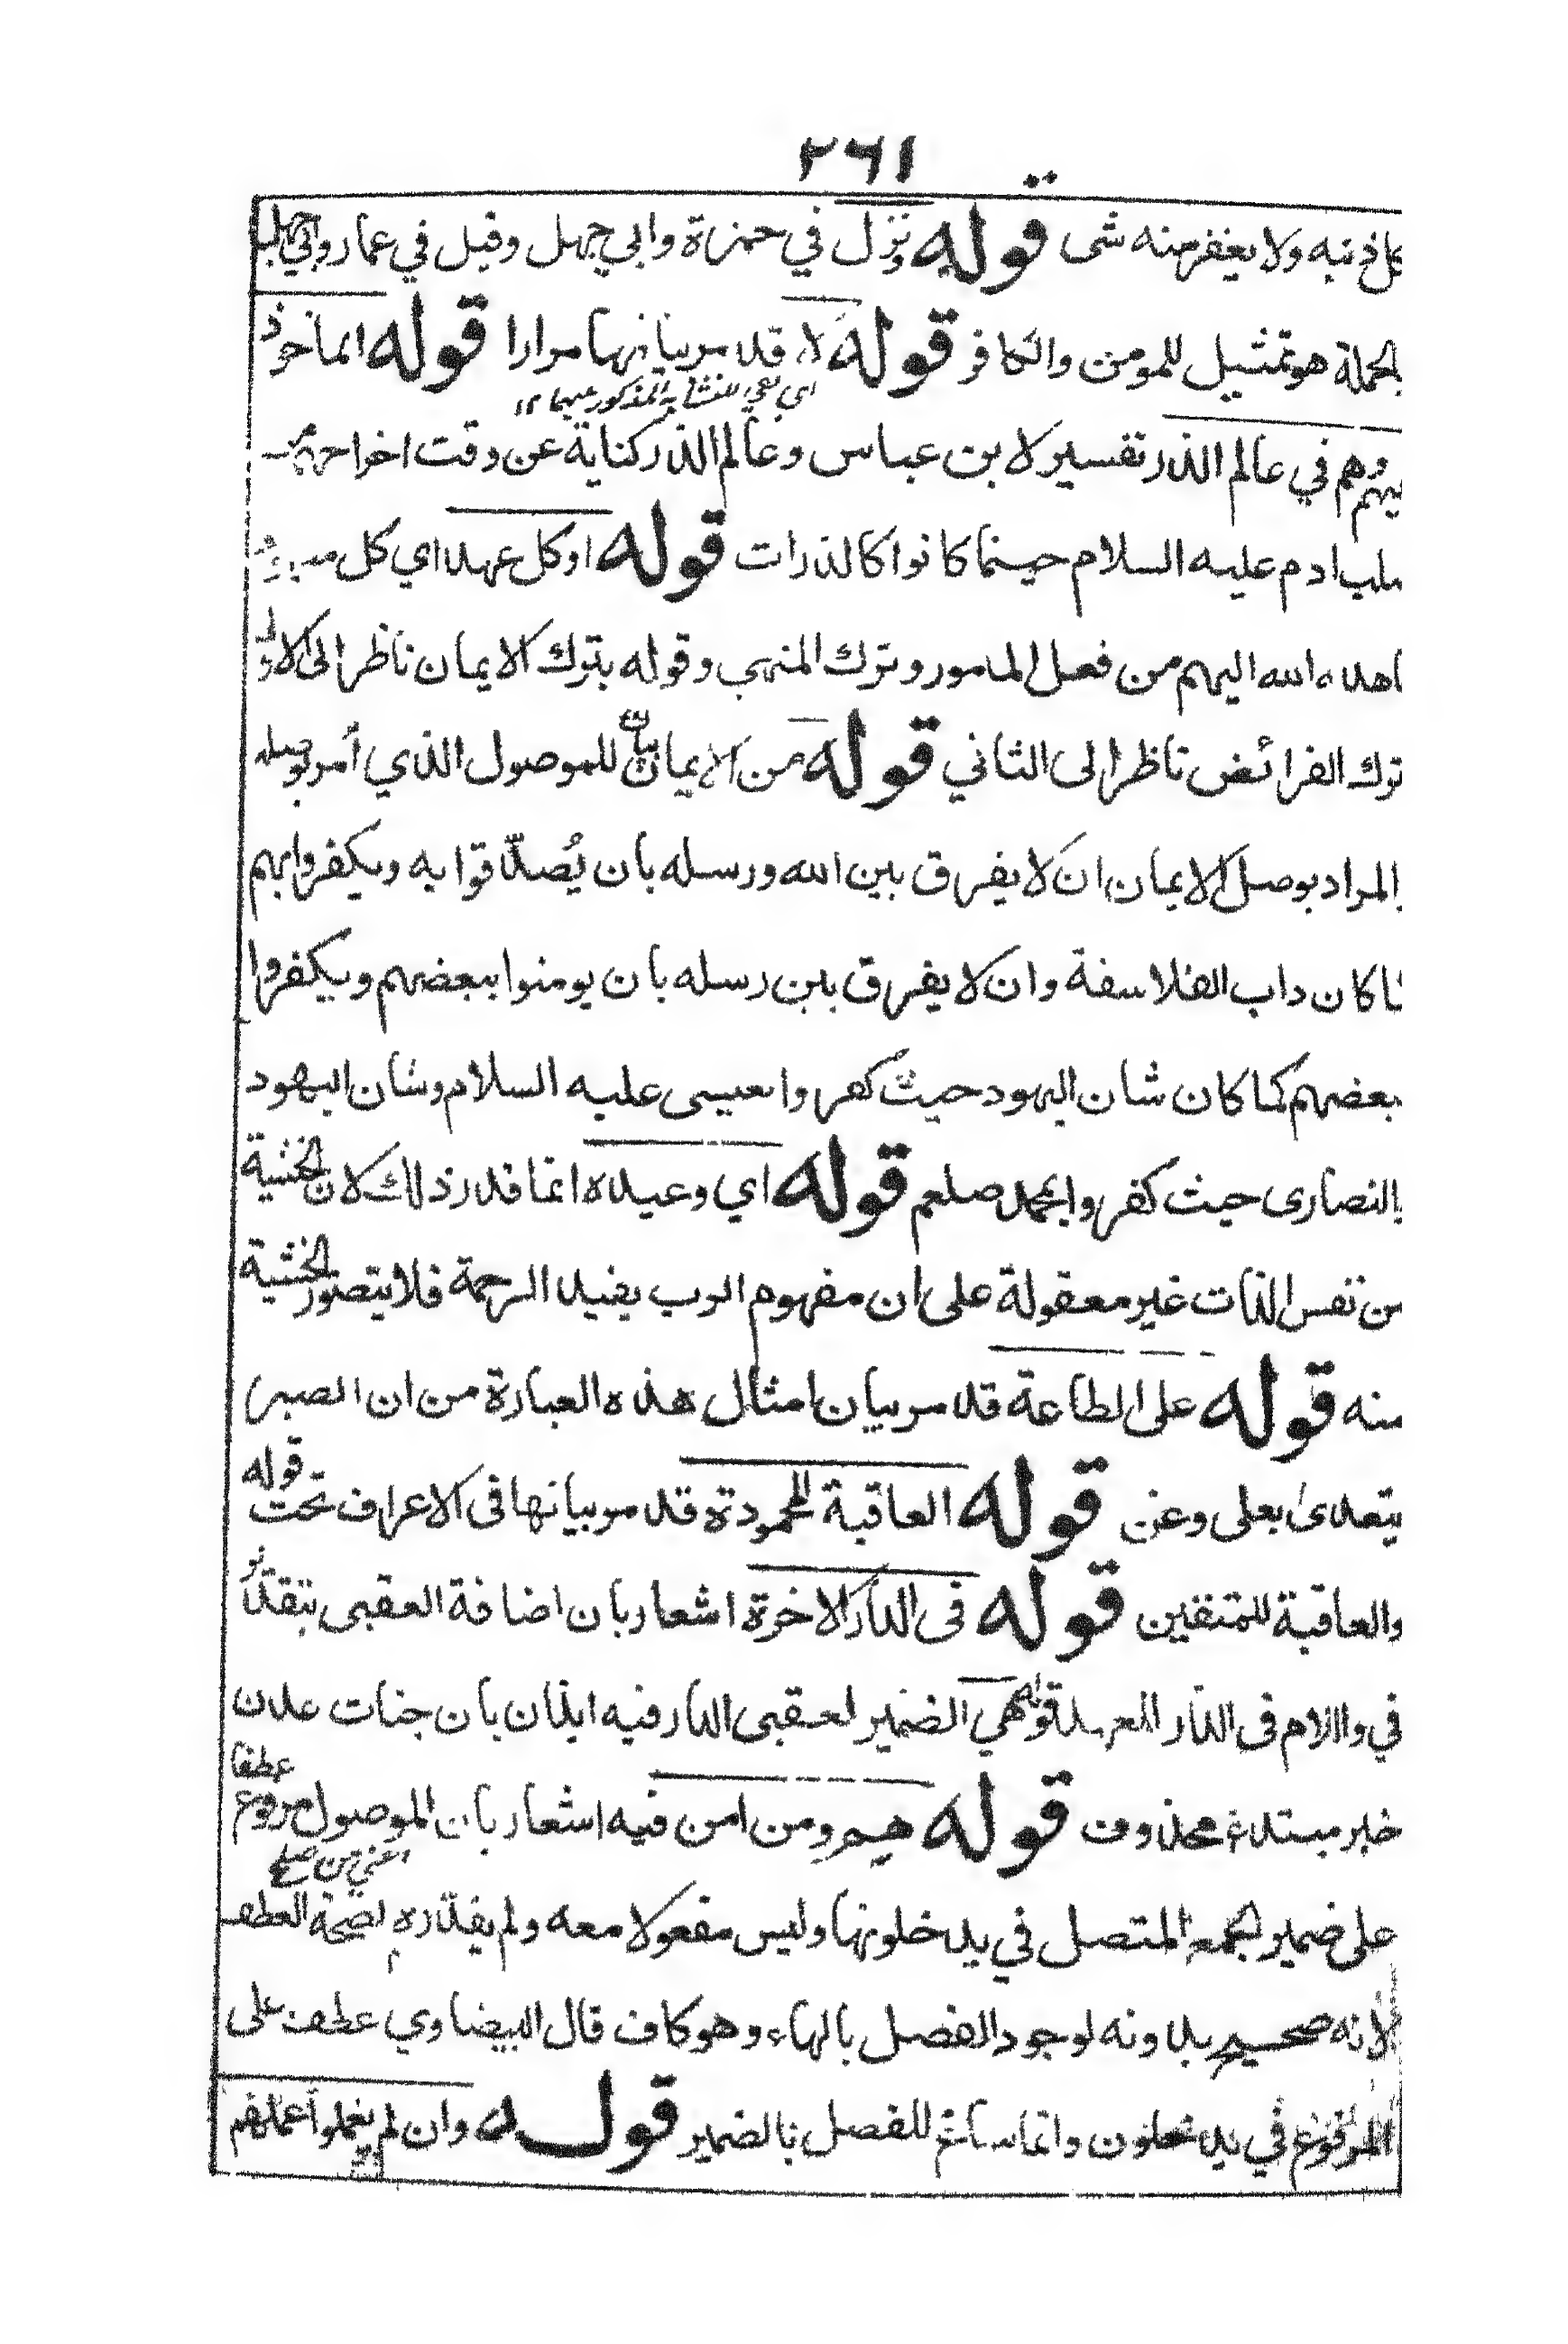 ٢٦١
كل ذنبه ولا يغفر منه شى قوله ونزل في حمزة وابي جهل وقيل في عمار وابي جهل
بالحملة هو تمثيل للمومن والكافر قوله لا قد مر بيانها مرارا قوله الماخوذ
اي نفي للتشابه المذكور عنهما ١٢
عليهم وهم في عالم الذر تفسير لابن عباس وعالم الذر كناية عن وقت اخراجهم من
صلب ادم عليه السلام حينما كانوا كالذرات قوله او كل عهد اي كل
عاهده الله اليهم من فعل المامور وترك المنهي وقوله بترك الايمان ناظر الى الاول
ترك الفرائض ناظر الى الثاني قوله من الايمان بيان للموصول الذي أمر بوصله
والمراد بوصل الايمان ان لا يفرق بين الله ورسله بان يُصدّقوا به ويكفروا بهم
كما كان داب الفلاسفة وان لا يفرق بين رسله بان يومنوا ببعضهم ويكفروا
ببعضهم كما كان شان اليهود حيث كفروا بعيسى عليه السلام وشان اليهود
والنصارى حيث كفروا بمحمد صلعم قوله اي وعيده انما قدر ذلك لان الخشية
من نفس الذات غير معقولة على ان مفهوم الرب يفيد الرحمة فلا يتصور الخشية
منه قوله على الطاعة قد مر بيان امثال هذه العبارة من ان الصبر
يتعدى بعلى وعن قوله العاقبة المحمودة قد مر بيانها فى الاعراف تحت قوله
والعاقبة للمتقين قوله فى الدار الاخرة اشعار بان اضافة العقبى بتقدير
في واللام فى الدار للعهد قوله هي الضمير لعقبى الدار فيه ايذان بان جنات عدن
خبر مبتدء محذوف قوله هم ومن امن فيه اشعار بان الموصول مرفوع عطفا
اعني من صلح
على ضمير الجمع المتصل في يدخلونها وليس مفعولا معه ولم يقدّره لصحة العطف
لانه صحيح بدونه لوجود الفصل بالهاء وهو كاف قال البيضاوي عطف على
المرفوع في يدخلون وانما ساغ للفصل بالضمير قوله وان لم يعملوا أعمالهم